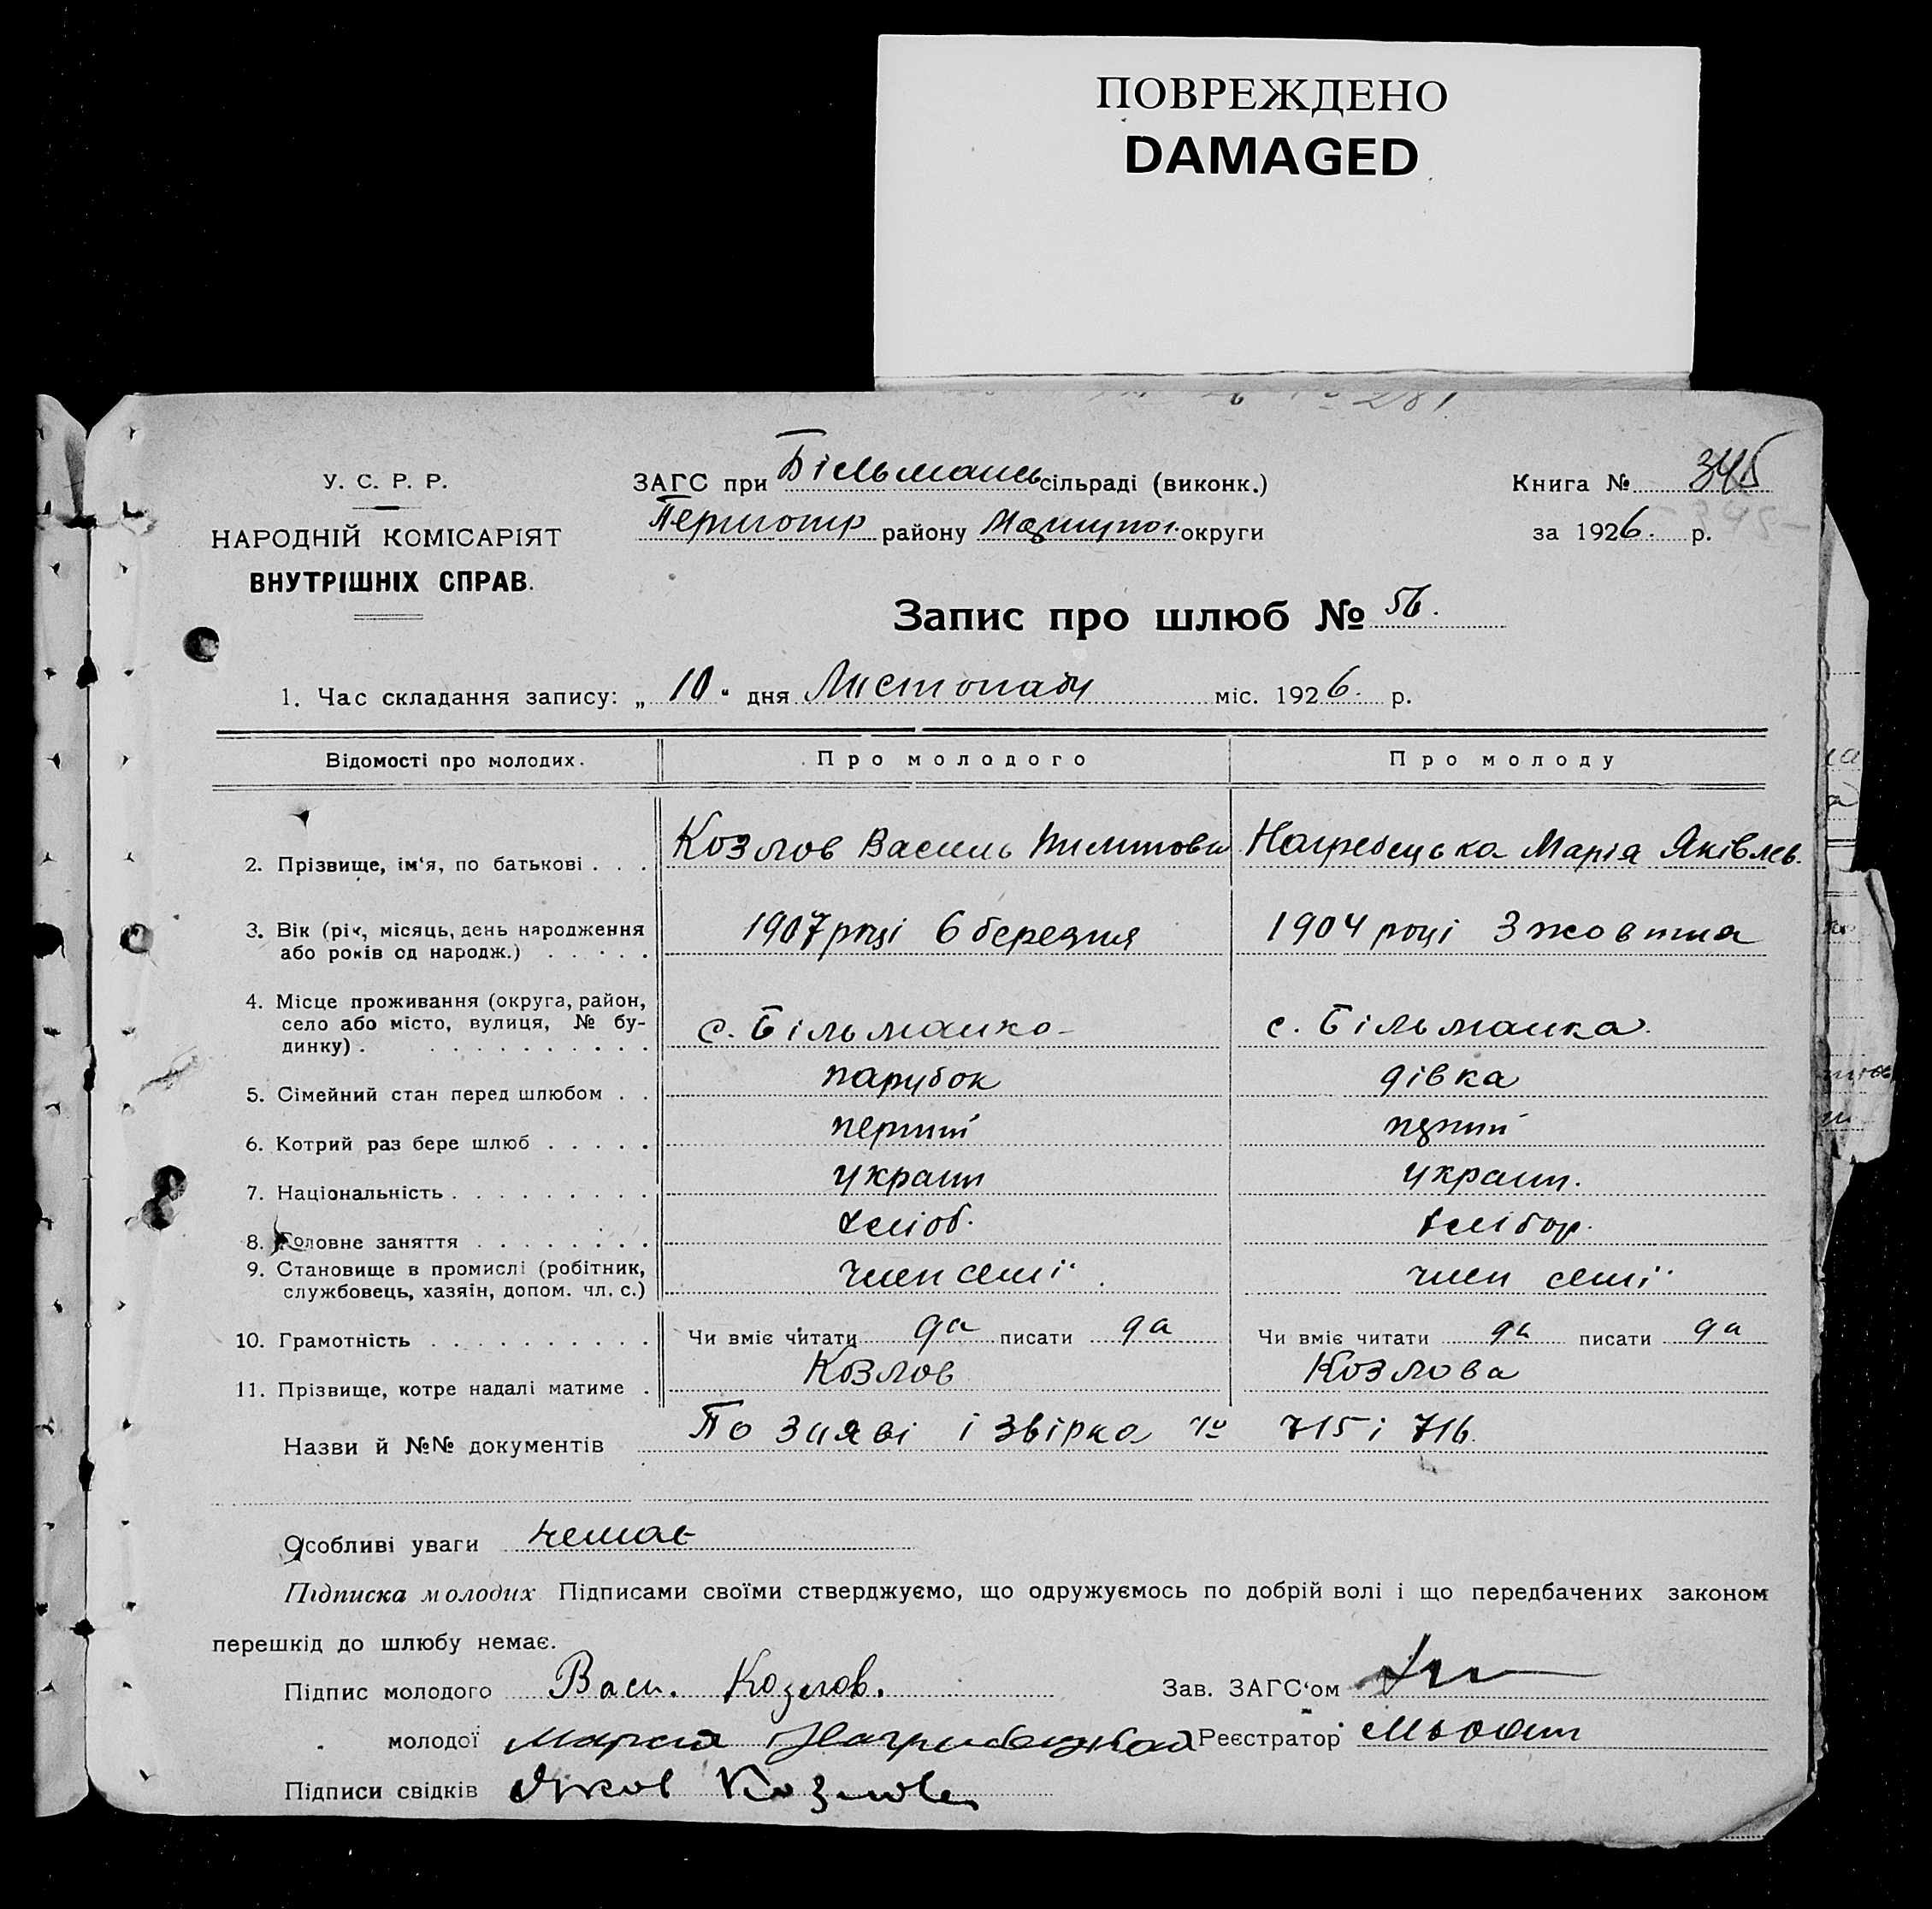 ПОВРЕЖДЕНО
DAMAGED
281
У. С. Р. Р.
НАРОДНІЙ КОМІСАРІЯТ
ВНУТРІШНІХ СПРАВ.
ЗАГС при Більмань сільраді (виконк.)
району Маріупол. округи
Книга № 345
за 1926. р.
- 345 -
Запис про шлюб № 56.
1. Час складання запису: „ 10 " дня Листопаду міс. 1926. р.
Відомості про молодих. Про молодого Про молоду
2. Прізвище, ім'я, по батькові . . . Козлов Василь Нагребецька Марія Яківлев.
3. Вік (рік, місяць, день народження
або років од народж.) . . . . . 1907 році 6 березня 1904 році 3 жовтня
4. Місце проживання (округа, район,
село або місто, вулиця, № бу-
динку) . . . . . . . . . . . с. Більманко- с. Більманка.
5. Сімейний стан перед шлюбом . . парубок дівка
6. Котрий раз бере шлюб . . . . . перший перший
7. Національність . . . . . . . . . україн україн.
8. Головне заняття . . . . . . . . хліб. хлібор.
9. Становище в промислі (робітник,
службовець, хазяїн, допом. чл. с.) член семії член семії
10. Грамотність . . . . . . . . . . Чи вміє читати да писати да Чи вміє читати да писати да
11. Прізвище, котре надалі матиме . Козлов Козлова
Назви й №№ документів По заяві і звірка № 715 і 716.
Особливі уваги немає
Підписка молодих Підписами своїми стверджуємо, що одружуємось по добрій волі і що передбачених законом
перешкід до шлюбу немає.
Підпис молодого Васи. Козлов. Зав. ЗАГС'ом
молодої Мария Нагребецкая Реєстратор
Підписи свідків Яков Козлов